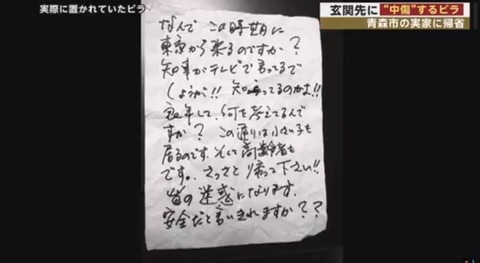 実際に置かれていたビラ
玄関先に"中傷"するビラ
青森市の実家に帰省
なんでこの時期に
東京から来るのですか?
知事がテレビで言ってるで
しょうが!! 知ってるのかよ!!
いい年して、何を考えてるんで
すか? この通りは小さい子も
居るのです。そして高齢者も
です。さっさと帰って下さい!!
皆の迷惑になります。
安全だと言いきれますか??